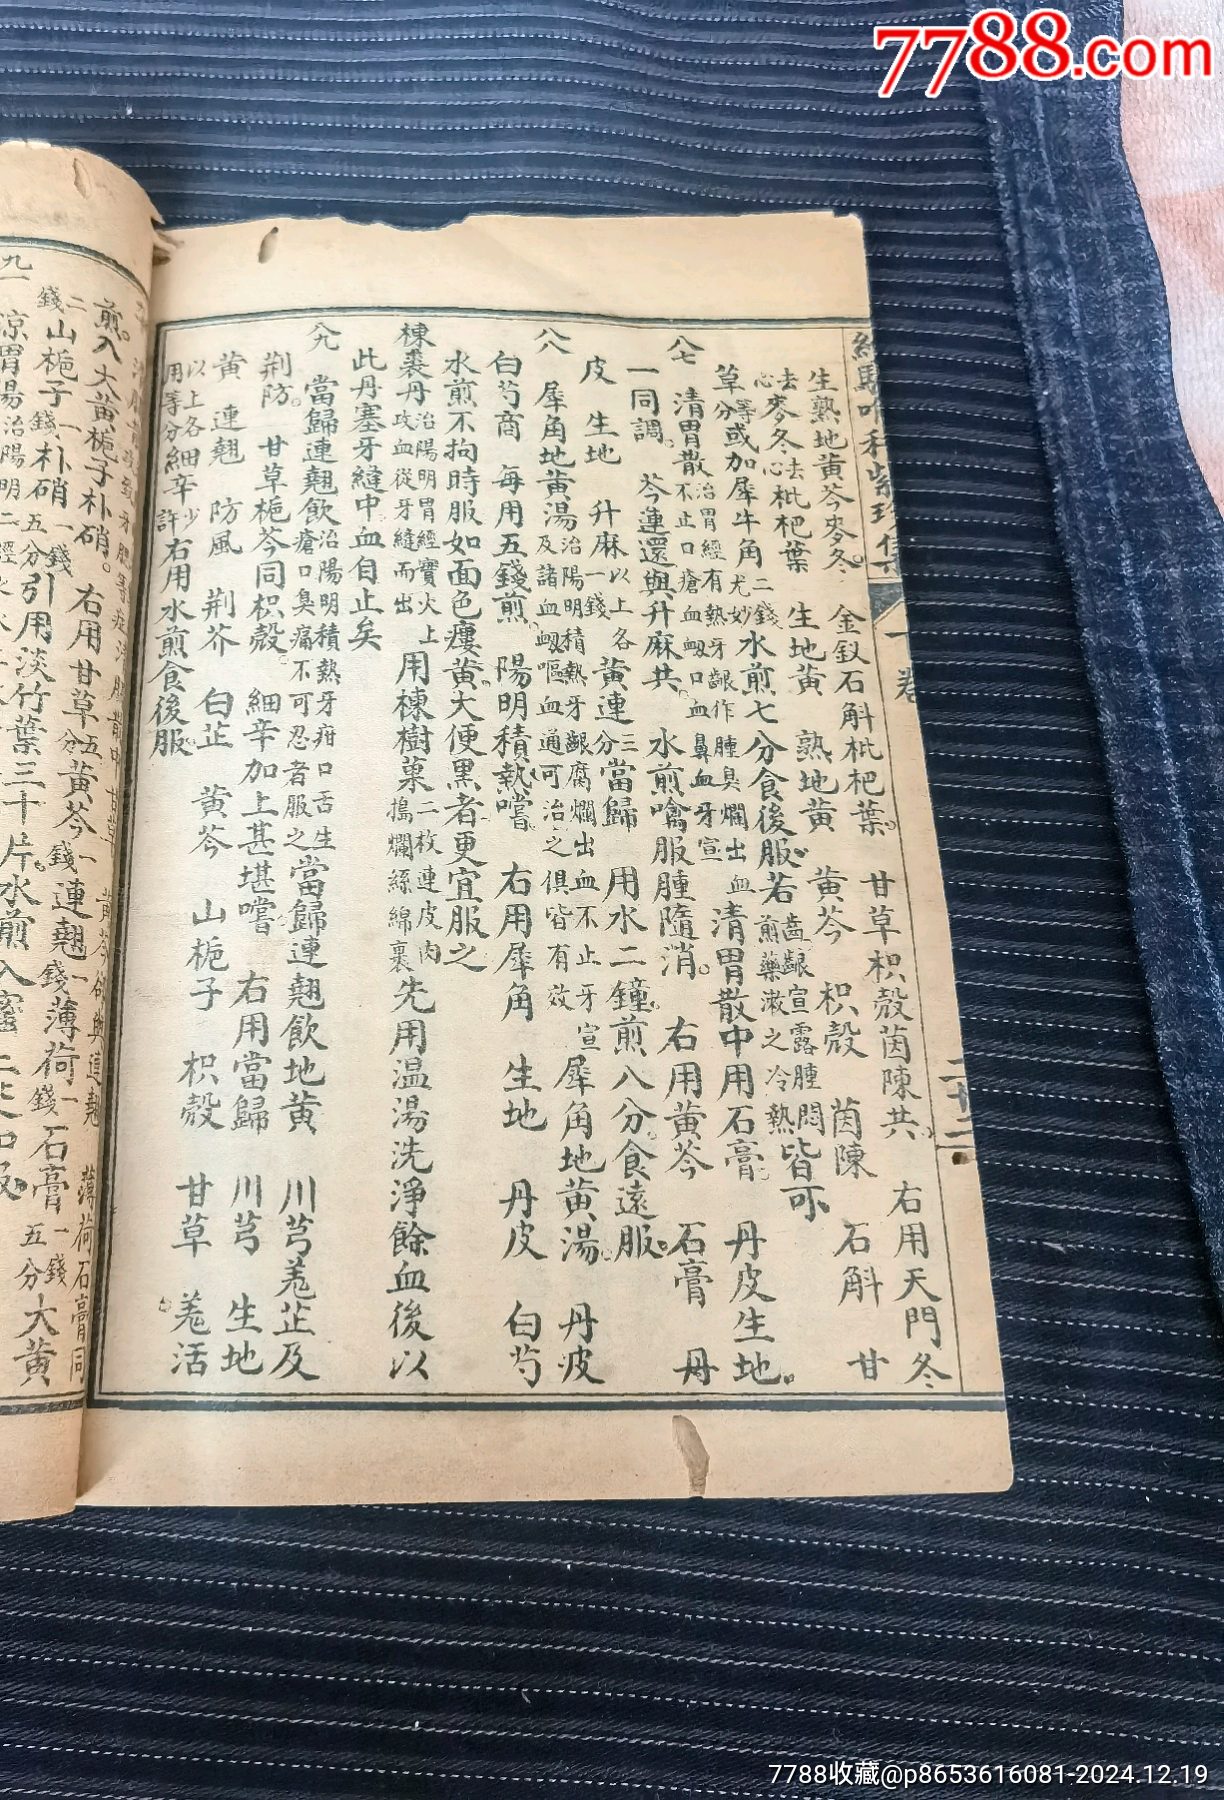 7788.com
經驗喉科紫珍集
卷
二十二
生熟地黃芩麥冬。金釵石斛枇杷葉。甘草枳殼茵陳共。右用天門冬
去心麥冬去心枇杷葉 生地黃 熟地黃 黃芩 枳殼 茵陳 石斛 甘
草等分或加犀牛角二錢尤妙水煎七分食後服若齒齦宣露腫悶煎藥漱之冷熱皆可
八七 清胃散治胃經有熱牙齦作腫臭爛出血不止口瘡血衄口血鼻血牙宣清胃散中用石膏。丹皮生地。
一同調。芩蓮還與升麻共。水煎噙服腫隨消。右用黃芩 石膏 丹
皮 生地 升麻一錢以上各黃連三分當歸 用水二鐘煎八分。食遠服。
八八 犀角地黃湯治陽明積熱牙齦腐爛出血不止牙宣及諸血衄嘔血通可治之俱皆有效犀角地黃湯。丹皮
白芍商 每用五錢煎。陽明積熱嚐。右用犀角 生地 丹皮 白芍
水煎不拘時服如面色痿黃大便黑者更宜服之
棟裘丹治陽明胃經實火上攻血從牙縫而出用棟樹菓二枚連皮肉搗爛絲綿裹先用温湯洗淨餘血後以
此丹塞牙縫中血自止矣
八九 當歸連翹飲治陽明積熱牙疳口舌生瘡口臭痛不可忍者服之當歸連翹飲地黃 川芎羗芷及
荆防。甘草梔芩同枳殼。細辛加上甚堪嚐 右用當歸 川芎 生地
黃 連翹 防風 荆芥 白芷 黃芩 山梔子 枳殼 甘草 羗活
以上各用等分細辛少許右用水煎食後服
煎。入大黃梔子朴硝。右用甘草五分黃芩一錢連翹一錢薄荷一錢石膏一錢
二錢山梔子一錢朴硝一錢五分引用淡竹葉三十片。水煎
九一 涼胃湯治陽明二經
五分大黃
7788收藏@p8653616081-2024.12.19